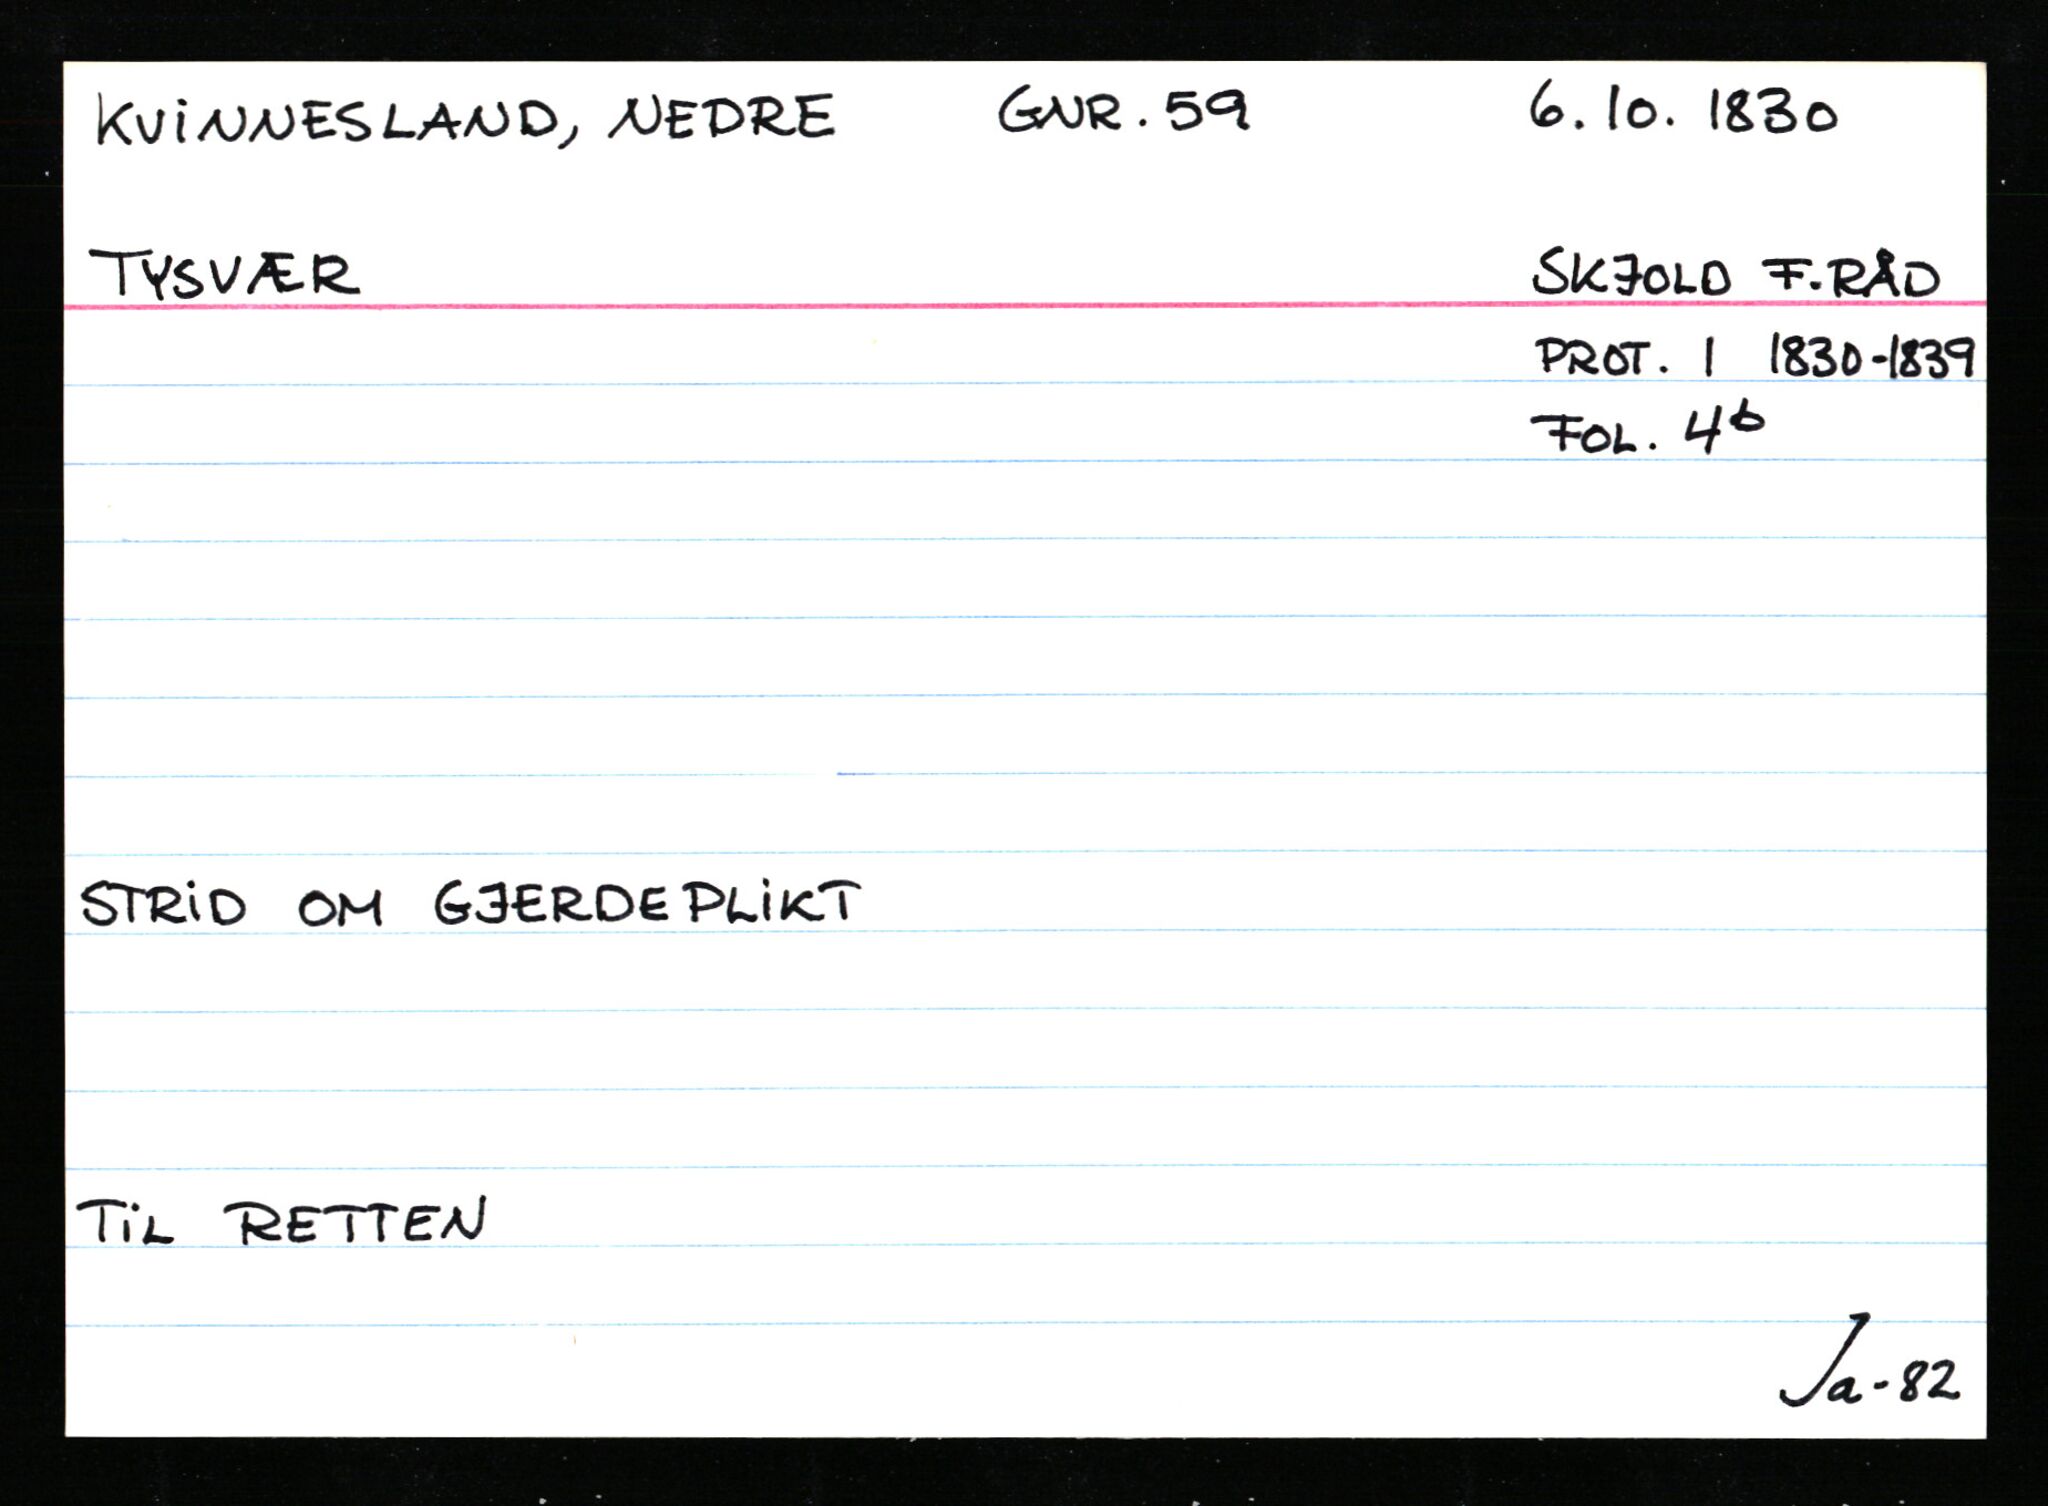 KVINNESLAND, NEDRE GNR. 59 6.10.1830
TYSVÆR SKJOLD F.RÅD
PROT. 1 1830-1839
FOL. 4b
STRID OM GJERDEPLIKT
TIL RETTEN
Ja-82